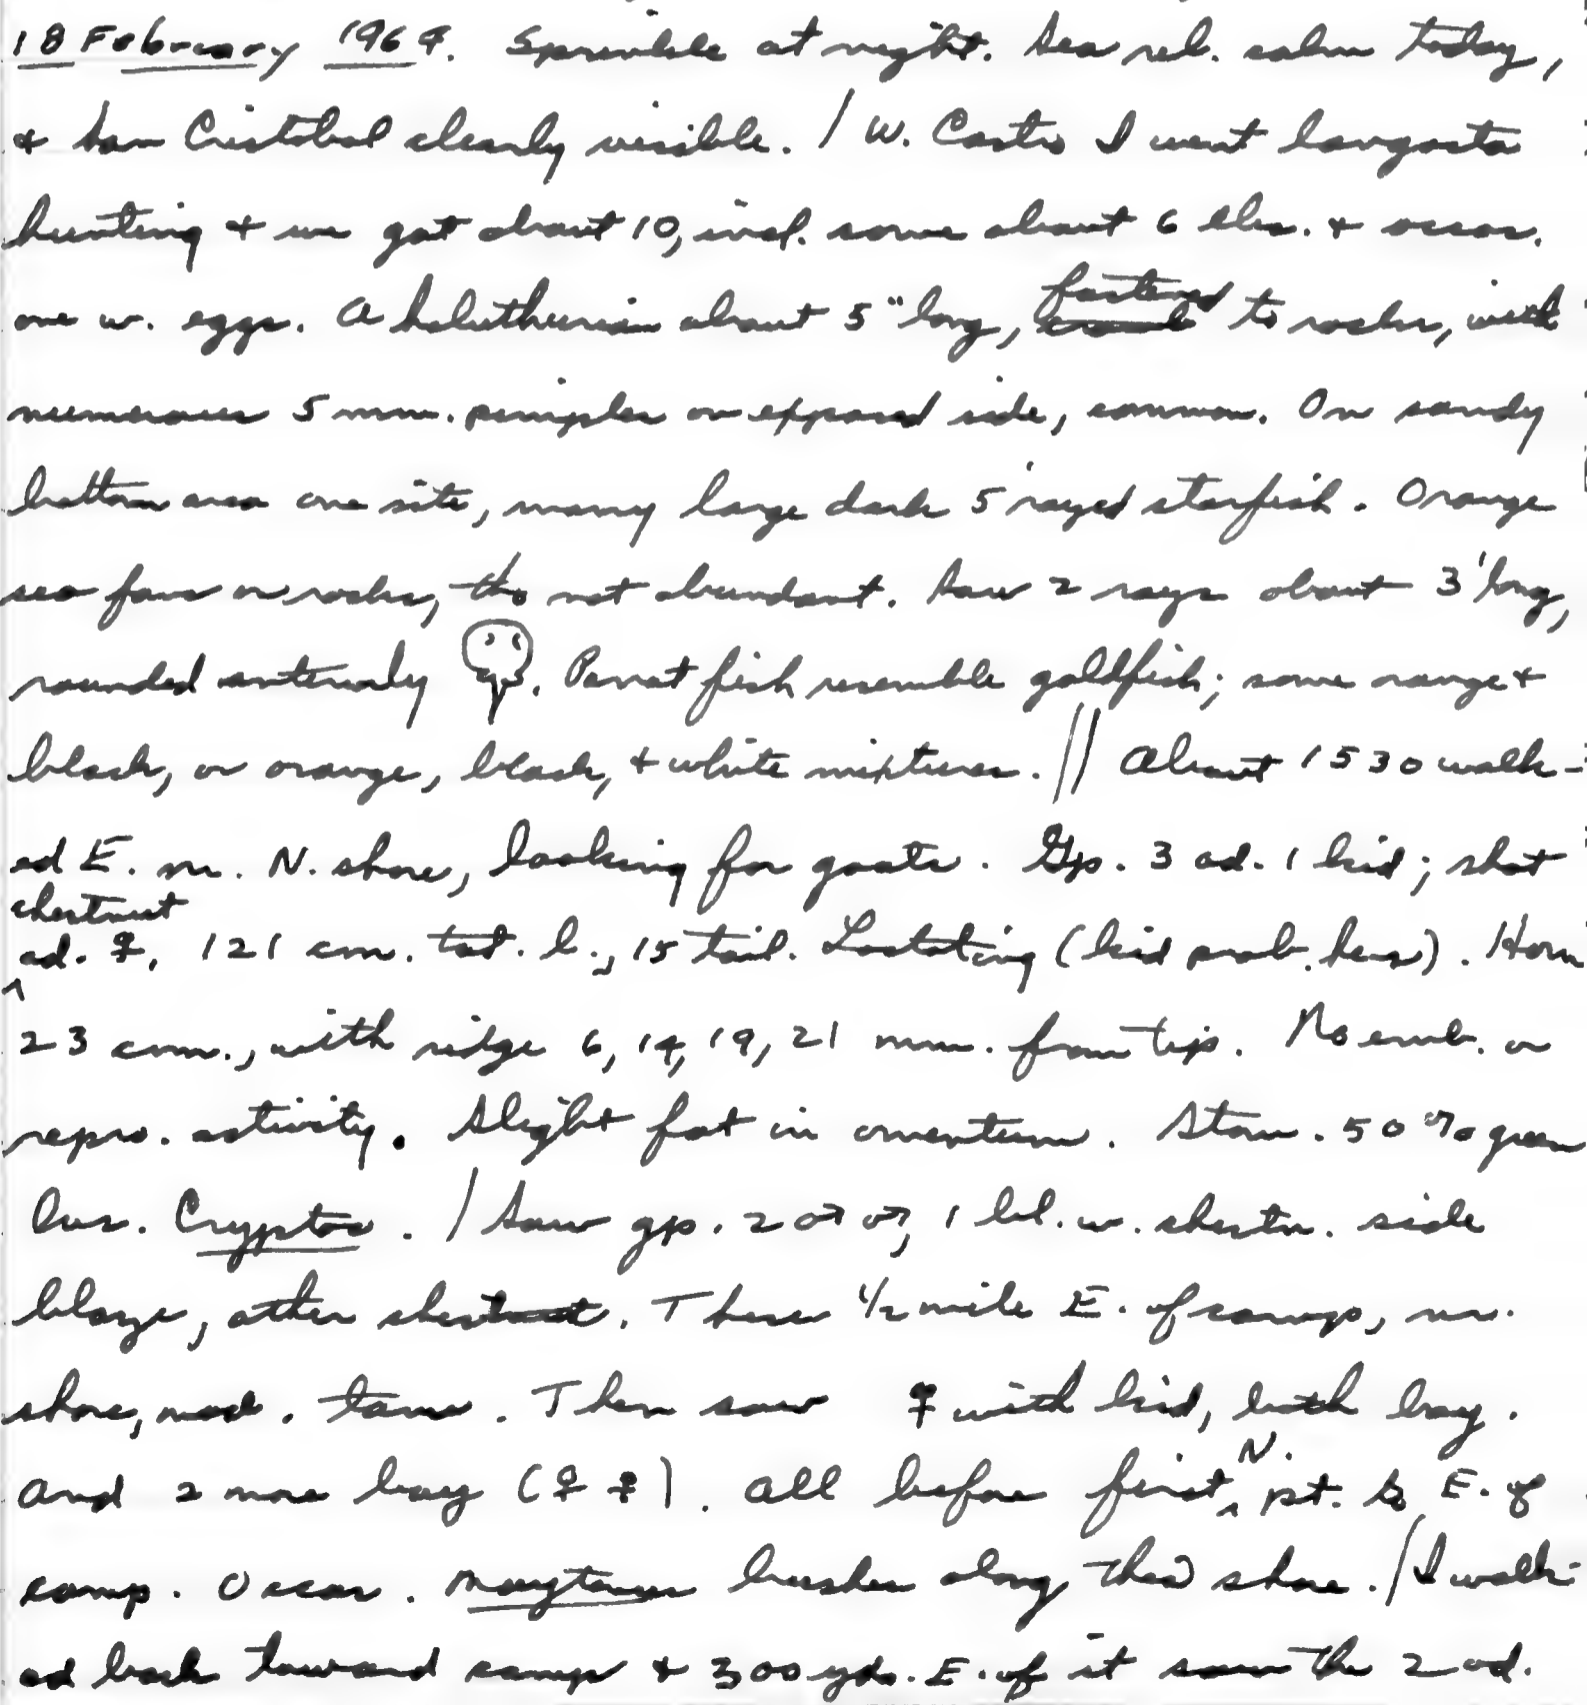 18 February 1964. Sprinkle at night. Sea rel. calm today,
& San Cristobal clearly visible. / W. Castro I went langosta
hunting & we got about 10, incl. some about 6 lbs. & occas.
one w. eggs. A holuthurian about 5" long, fastened to rocks, with
numerous 5 mm. pimples on exposed side, common. On sandy
bottom area one site, many large dark 5 rayed starfish. Orange
sea fans on rocks, tho not abundant. Saw 2 rays about 3' long,
rounded anteriorly. Parrot fish resemble goldfish; some orange &
black, or orange, black, & white mixtures. // About 1530 walk-
ed E. nr. N. shore, looking for goats. Gp. 3 ad. 1 kid; shot
chestnut
ad. ♀, 121 cm. tot. l., 15 tail. Lactating (kid prob. hers). Horn
23 cm., with ridge 6, 14, 19, 21 mm. from tip. No emb. or
repro. activity. Slight fat in omentum. Stom. 50% green
lvs. Cryptoc. / Saw gp. 2 ♂♂, 1 bl. w. chestn. side
blaze, other chestnut. These 1/2 mile E. of camp, nr.
shore, mod. tame. Then saw ♀ with kid, both bay.
And 2 more bay (♀ ♀). All before first N. pt. to E. of
camp. Occas. Maytenus bushes along this shore. / I walk-
ed back toward camp & 300 yds. E. of it saw the 2 ad.